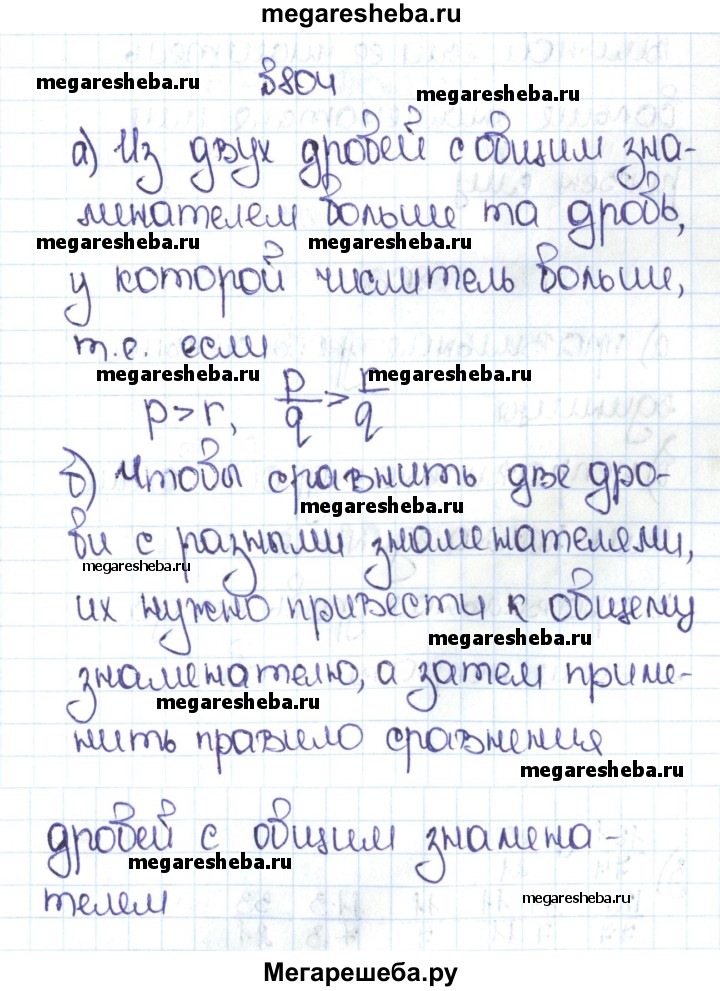 megaresheba.ru
№804
megaresheba.ru
megaresheba.ru
а) Из двух дробей с общим зна-
менателем больше та дробь,
megaresheba.ru
megaresheba.ru
у которой числитель больше,
т.е. если
megaresheba.ru
megaresheba.ru
p>r, p/q > r/q
б) Чтобы сравнить две дро-
megaresheba.ru
би с разными знаменателями,
megaresheba.ru
их нужно привести к общему
megaresheba.ru
знаменателю, а затем приме-
megaresheba.ru
нить правило сравнения
megaresheba.ru
дробей с общим знамена-
megaresheba.ru
телем
megaresheba.ru
Мегарешеба.ру